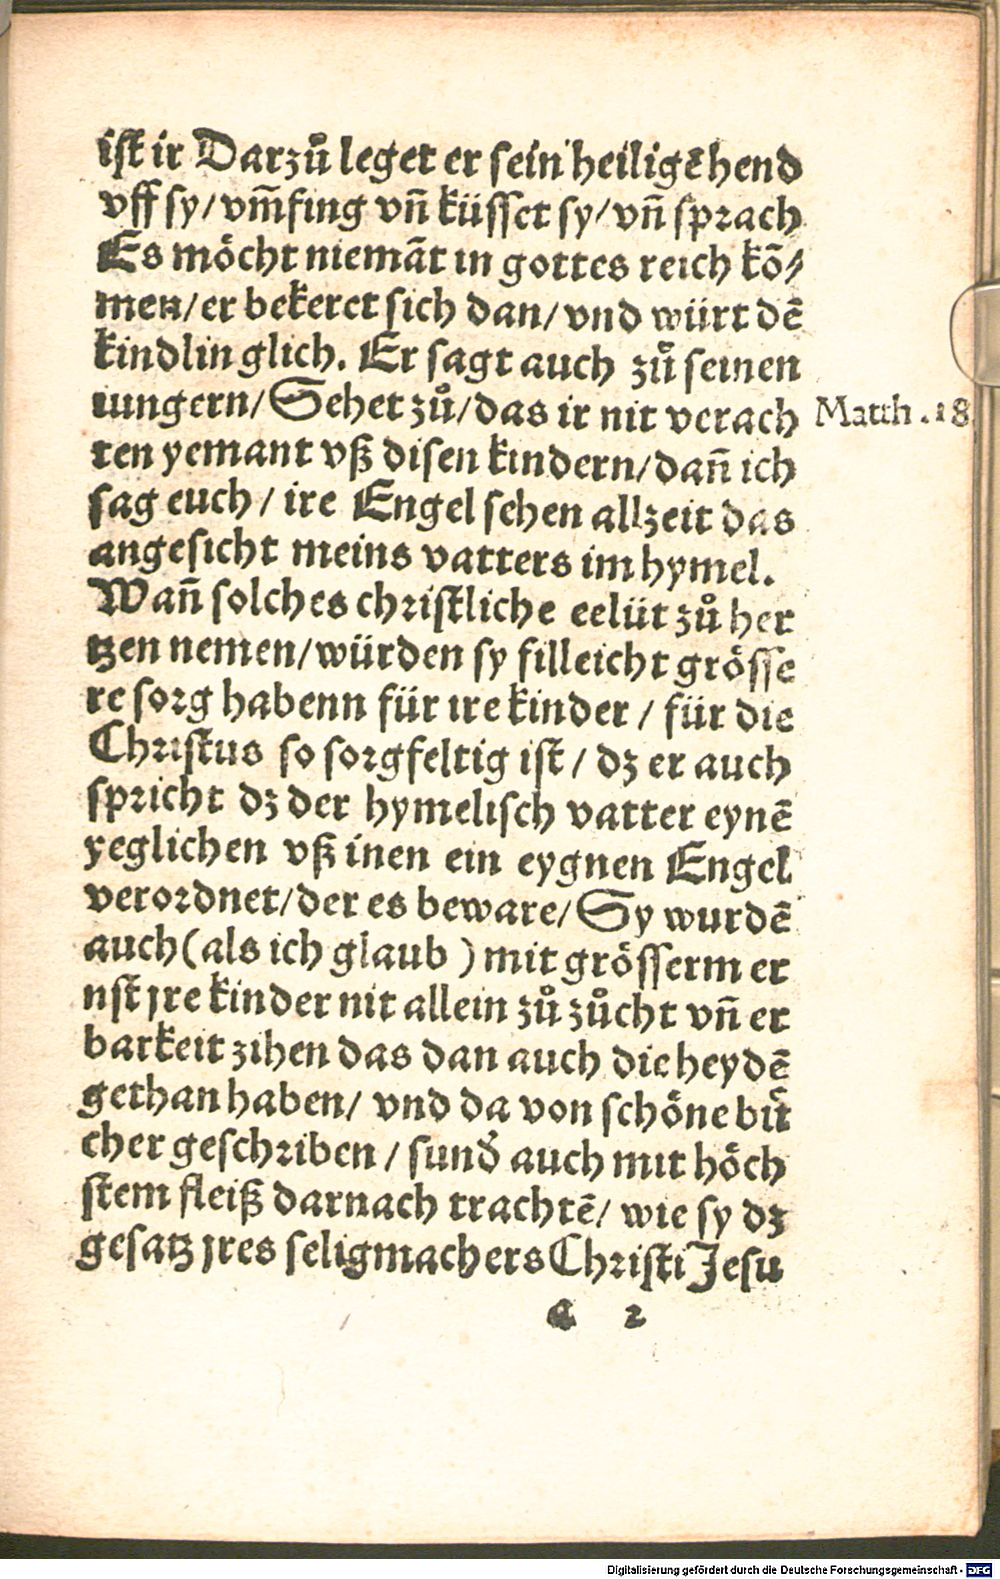 ist ir Darzů leget er sein heiligē hend
vff sy/vm̄fing vn̄ küsset sy/vn̄ sprach
Es möcht niemāt in gottes reich kō⸗
men/er bekeret sich dan/vnd würt dē
kindlin glich. Er sagt auch zů seinen
iungern/Sehet zů/das ir nit verach
ten yemant vß disen kindern/dan̄ ich
sag euch/ ire Engel sehen allzeit das
angesicht meins vatters im hymel.
Wan̄ solches christliche eelüt zů her
tzen nemen/würden sy filleicht grösse
re sorg habenn für ire kinder / für die
Christus so sorgfeltig ist / dz er auch
spricht dz der hymelisch vatter eynē
yeglichen vß inen ein eygnen Engel
verordnet/der es beware/Sy wurdē
auch(als ich glaub ) mit grösserm er
nst jre kinder nit allein zů zůcht vn̄ er
barkeit zihen das dan auch die heydē
gethan haben/ vnd da von schöne bů
cher geschriben / sund̕ auch mit höch
stem fleiß darnach trachtē/ wie sy dz
gesatz jres seligmachers Christi Jesu
a 2
Matth .18
Digitalisierung gefördert durch die Deutsche Forschungsgemeinschaft - DFG